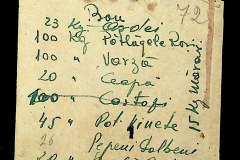 Bon
72
23 Kg Ardei
100 Kg Pătlăgele Roșii
100 " Varză
20 " Ceapă
100 " Cartofi
45 " Pot
Pepeni Galbeni
15 kg